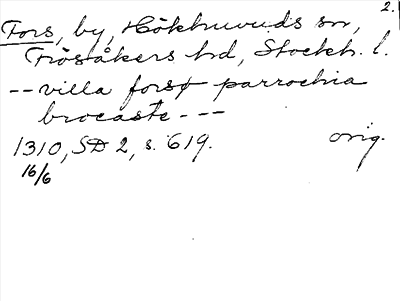 2.
Fors, by, Hökhuvuds sn,
Frösåkers hd, Stockh. l.
-- villa forsø parrochia
brocaste - --
1310, SD 2, s. 619. orig.
16/6